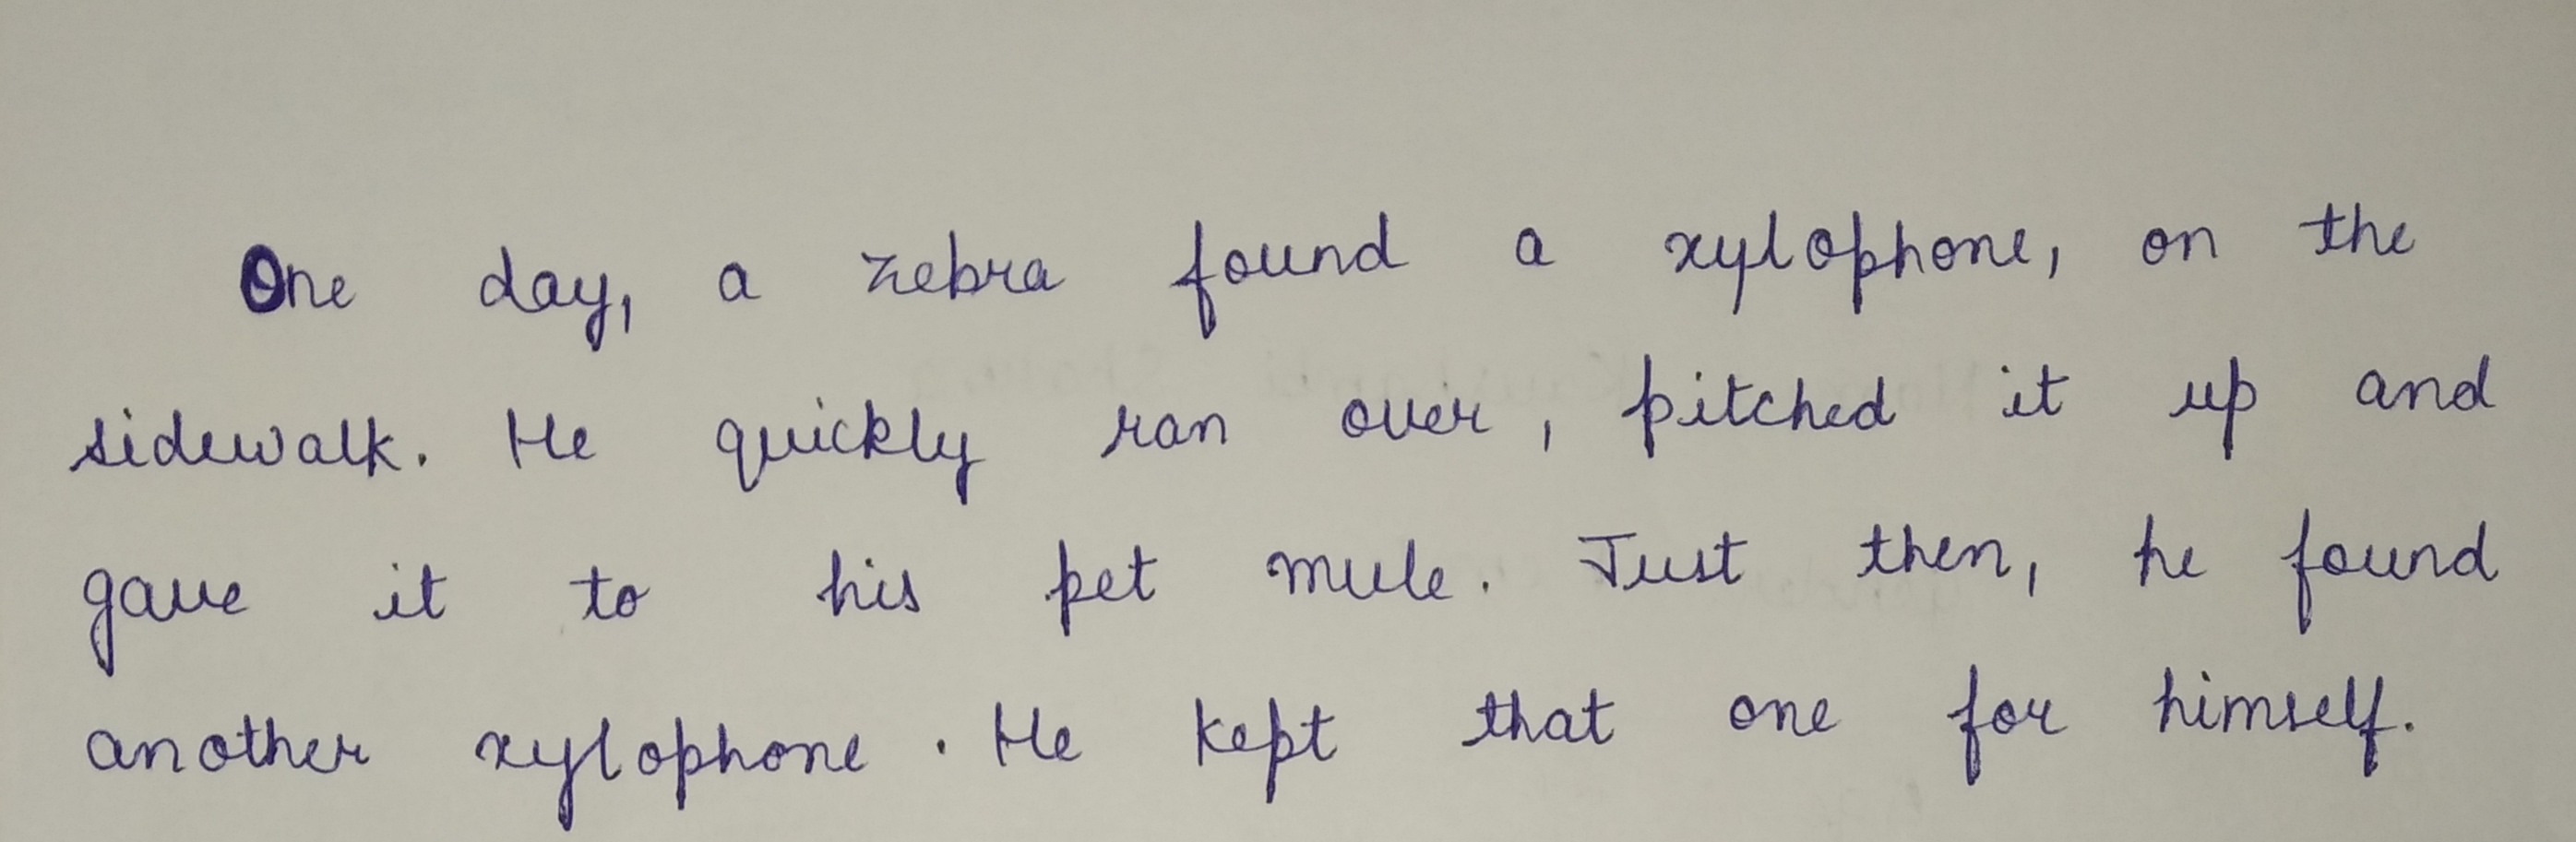 One day, a zebra found a xylophone, on the
sidewalk. He quickly ran over, pitched it up and
gave it to his pet mule. Just then, he found
another xylophone. He kept that one for himself.